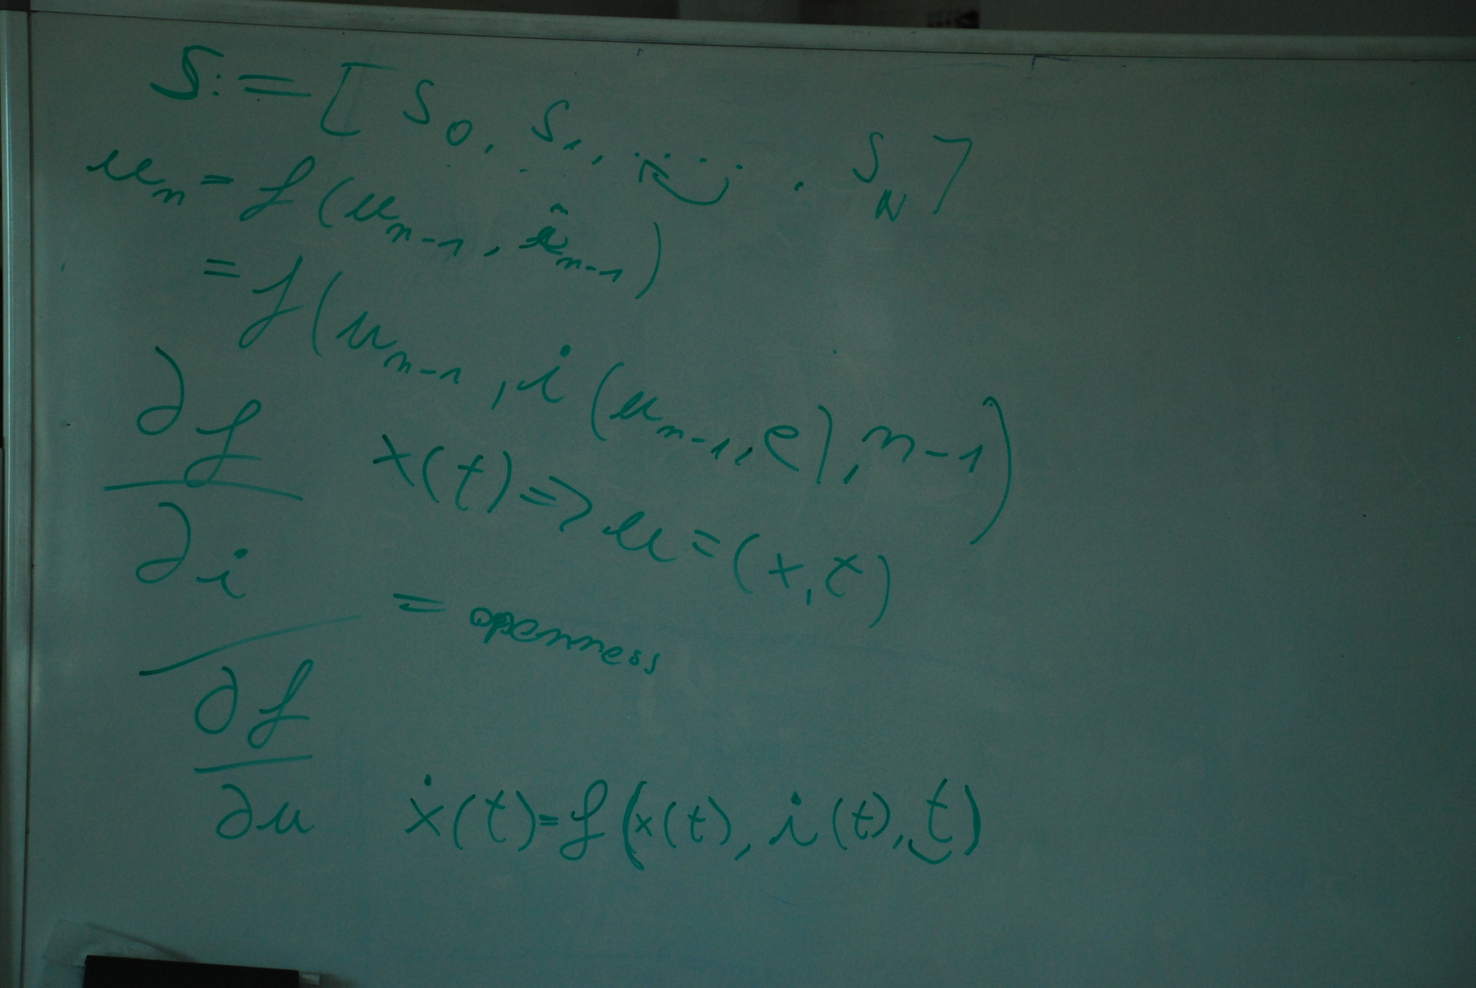 S := [ S₀, S₁, ....... , S_N ]
u_n = f(u_{n-1}, i_{n-1})
= f(u_{n-1}, i(u_{n-1}, e), n-1)
∂f
∂i
x(t) => u = (x, t)
= openness
∂f
∂u
ẋ(t) = f(x(t), i(t), t)